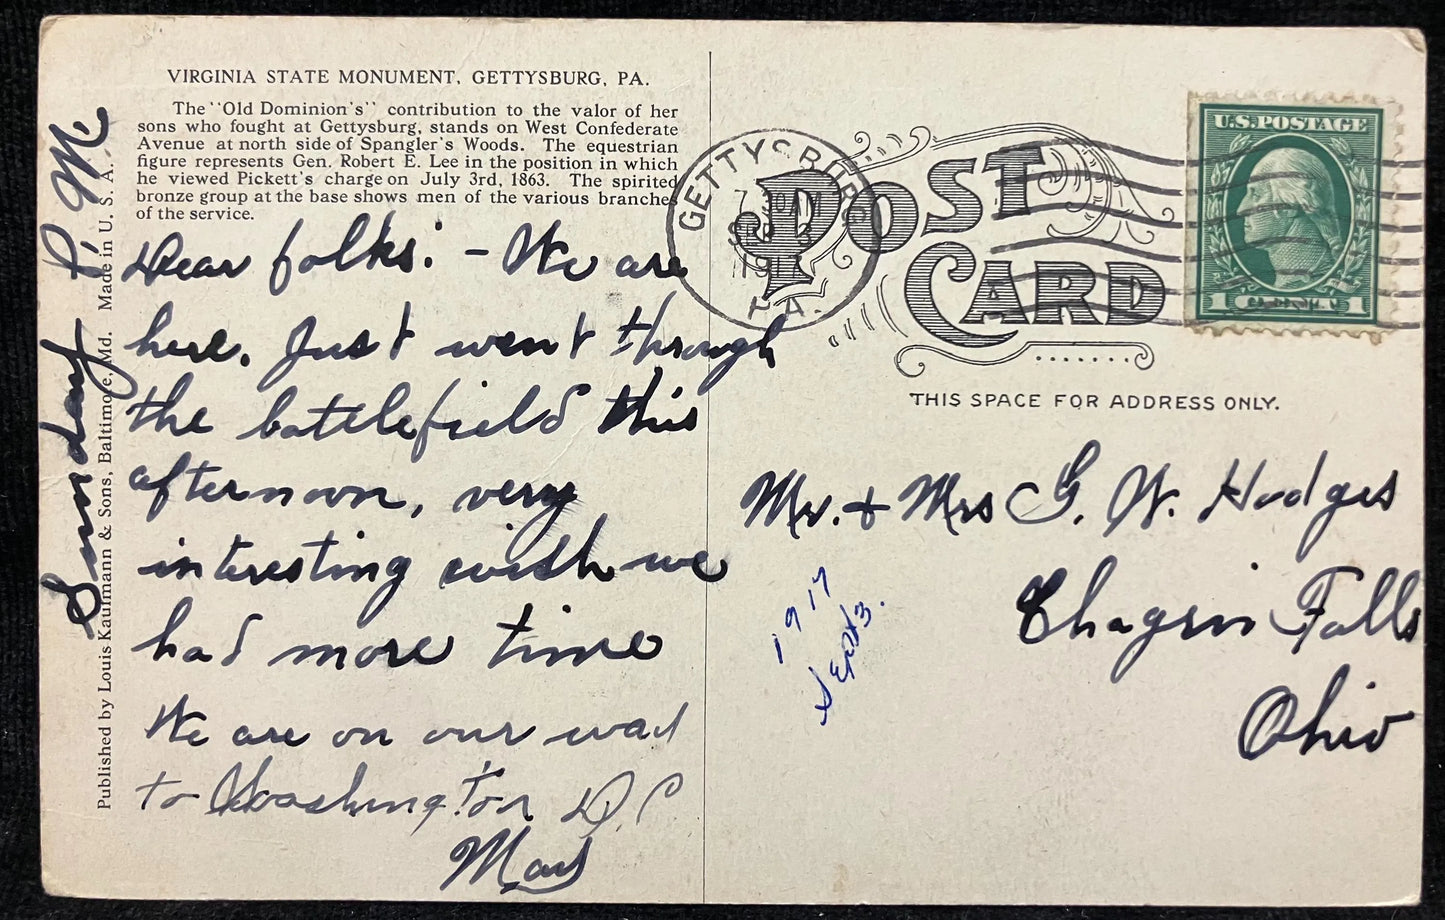 VIRGINIA STATE MONUMENT, GETTYSBURG, PA.
The "Old Dominion's" contribution to the valor of her
sons who fought at Gettysburg, stands on West Confederate
Avenue at north side of Spangler's Woods. The equestrian
figure represents Gen. Robert E. Lee in the position in which
he viewed Pickett's charge on July 3rd, 1863. The spirited
bronze group at the base shows men of the various branches
of the service.
Sunday P. M.
Published by Louis Kaufmann & Sons, Baltimore, Md. Made in U. S. A.
Dear folks: - We are
here. Just went through
the battlefield this
afternoon, very
interesting wish we
had more time
We are on our way
to Washington D.C
GETTYSBURG
7 30 AM
PA.
POST
CARD
U.S. POSTAGE
1 1
THIS SPACE FOR ADDRESS ONLY.
Mr. & Mrs G. W. Hodges
Chagrin Falls
Ohio
1917
Sept 3.